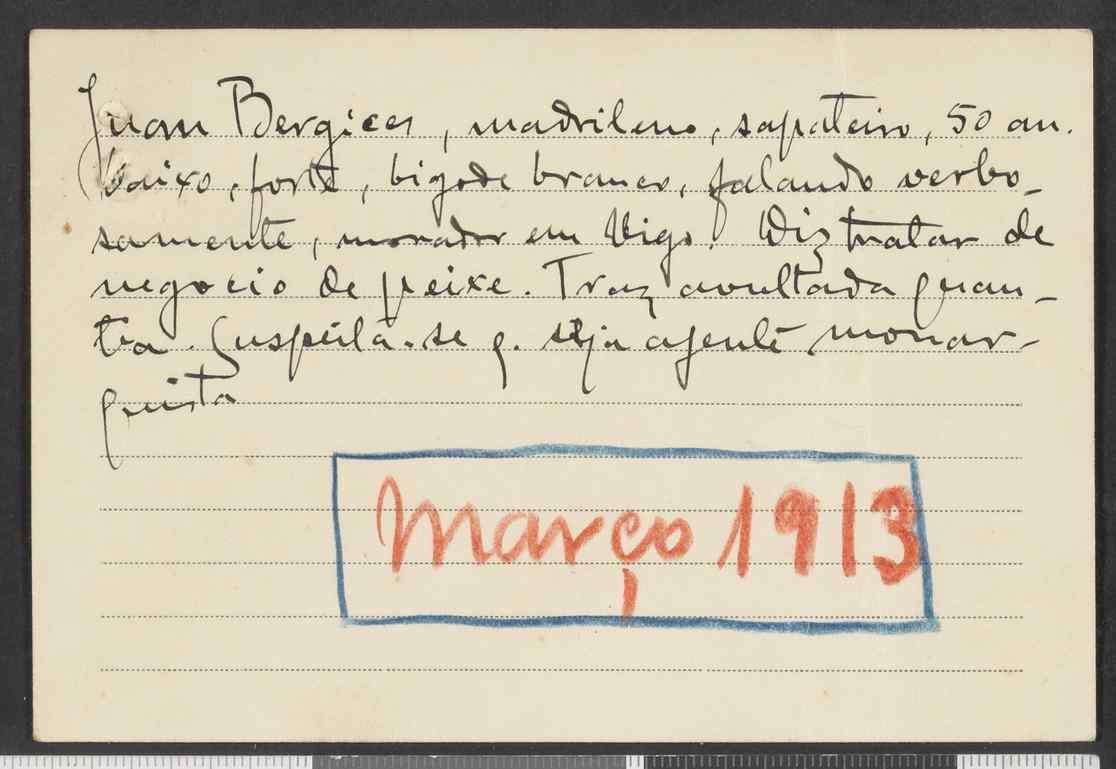 Juan Bergices, madrileno, sapateiro, 50 an.
baixo, forte, bigode branco, falando verbo-
samente, morador em Vigo. Diz tratar de
negocio de peixe. Traz avultada quan-
tia. Suspeita-se q. seja agente monar-
quista
Março 1913